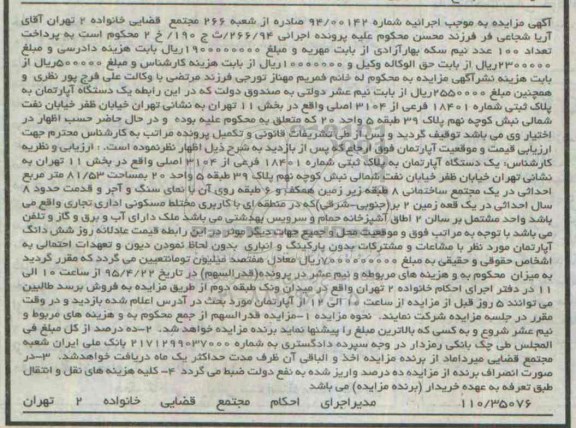 آگهی مزایده به موجب اجرائیه شماره ۹۴/۰۰۱۴۲ صادره از شعبه ۲۶۶ مجتمع قضایی خانواده ۲ تهران آقای
آریا شجاعی فر فرزند محسن محکوم علیه پرونده اجرائی ۲۶۶/۹۴/ث ج ۱۹۰/ خ ۲ محکوم است به پرداخت
تعداد ۱۰۰ عدد نیم سکه بهارآزادی از بابت مهریه و مبلغ ۱۹۰۰۰۰۰۰۰۰ریال بابت هزینه دادرسی و مبلغ
۲۳۰۰۰۰۰۰ریال از بابت حق الوکاله وکیل و ۱۰۰۰۰۰۰۰ریال از بابت هزینه کارشناس و مبلغ ۵۰۰۰۰۰ریال از
بابت هزینه نشرآگهی مزایده به محکوم له خانم مریم مهناز تورجی فرزند مرتضی با وکالت علی فرج پور نظری و
همچنین مبلغ ۲۵۵۰۰۰۰ریال از بابت نیم عشر دولتی به صندوق دولت که در این رابطه یک دستگاه آپارتمان به
پلاک ثبتی شماره ۱۸۴۰۱ فرعی از ۳۱۰۴ اصلی واقع در بخش ۱۱ تهران به نشانی تهران خیابان ظفر خیابان نفت
شمالی نبش کوچه نهم پلاک ۳۹ طبقه ۵ واحد ۲۰ که متعلق به محکوم علیه بوده و در حال حاضر حسب اظهار در
اختیار وی می باشد توقیف گردید و پس از طی تشریفات قانونی و تکمیل پرونده مراتب به کارشناس محترم جهت
ارزیابی قیمت و موقعیت آپارتمان فوق ارجاع که پس از بازدید به شرح ذیل اظهار نظرنموده است. . ارزیابی و نظریه
کارشناس: یک دستگاه آپارتمان به پلاک ثبتی شماره ۱۸۴۰۱ فرعی از ۳۱۰۴ اصلی واقع در بخش ۱۱ تهران به
نشانی تهران خیابان ظفر خیابان نفت شمالی نبش کوچه نهم پلاک ۳۹ طبقه ۵ واحد ۲۰ بمساحت ۸۱/۵۳ متر مربع
احداثی در یک مجتمع ساختمانی ۸ طبقه زیر زمین همکف و ۶ طبقه روی آن با نمای سنگ و آجر و قدمت حدود ۸
سال احداثی در یک قطعه زمین ۲ بر(جنوبی-شرقی)که در منطقه ای با کاربری مختلط مسکونی اداری تجاری واقع می
باشد واحد مشتمل بر سالن ۲ اطاق آشپزخانه حمام و سرویس بهداشتی می باشد ملک دارای آب و برق و گاز و تلفن
می باشد با توجه به مراتب فوق و موقعیت محل و جمیع جهات دیگر موثر در این رابطه قیمت عادلانه روز شش دانگ
آپارتمان مورد نظر با مشاعات و مشترکات بدون پارکینگ و انباری بدون لحاظ نمودن دیون و تعهدات احتمالی به
اشخاص حقوقی و حقیقی به مبلغ ۷۰۰۰۰۰۰۰۰۰ریال معادل هفتصد میلیون تومانتعیین می گردد که مقرر گردید
به میزان محکوم به و هزینه های مربوطه و نیم عشر در پرونده(قدرالسهم) در تاریخ ۹۵/۴/۲۲ از ساعت ۱۰ الی
۱۱ در دفتر اجرای احکام خانواده ۲ تهران واقع در میدان ونک طبقه دوم از طریق مزایده به فروش برسد طالبین
می توانند ۵ روز قبل از مزایده از ساعت ۱۰ الی ۱۲ از آپارتمان مورد بحث در آدرس اعلام شده بازدید و در وقت
مقرر در جلسه مزایده شرکت نمایند. نحوه مزایده ۱-مزایده قدرالسهم از جمع محکوم به و هزینه های مربوط و
نیم عشر شروع و به کسی که بالاترین مبلغ را پیشنهاد نماید برنده مزایده خواهد شد. ۲-ده درصد از کل مبلغ فی
المجلس طی چک بانکی رمزدار در وجه سپرده دادگستری به شماره ۲۱۷۱۲۹۹۰۳۷۰۰۰ بانک ملی ایران شعبه
مجتمع قضایی میرداماد از برنده مزایده اخذ و الباقی آن ظرف مدت حداکثر یک ماه دریافت خواهدشد. ۳-در
صورت انصراف برنده از مزایده ده درصد واریز شده به نفع دولت ضبط می گردد ۴- کلیه هزینه های نقل و انتقال
طبق تعرفه به عهده خریدار (برنده مزایده) می باشد
۱۱۰/۳۵۰۷۶ مدیراجرای احکام مجتمع قضایی خانواده ۲ تهران